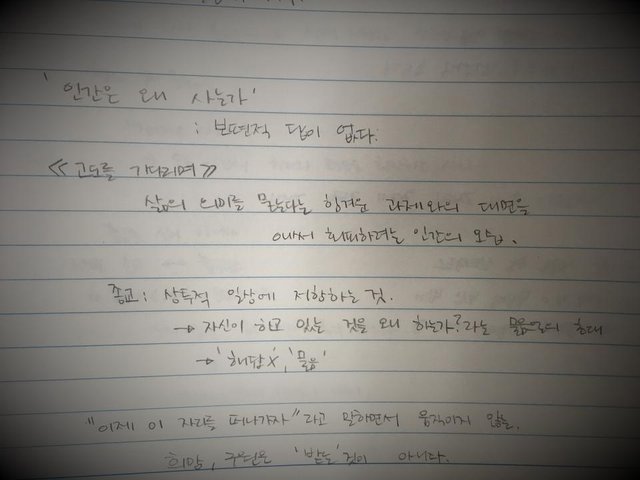 '인간은 왜 사는가'
: 보편적 답이 없다.
《고도를 기다리며》
삶의 의미를 묻는다는 힘겨운 과제와의 대면을
애써 회피하려는 인간의 모습.
종교: 상투적 일상에 저항하는 것.
→ 자신이 하고 있는 것을 왜 하는가?라는 물음으로의 초대
→ '해답'X, '물음'
"이제 이 자리를 떠나가자"라고 말하면서 움직이지 않는.
희망, 구원은 '받는' 것이 아니다.